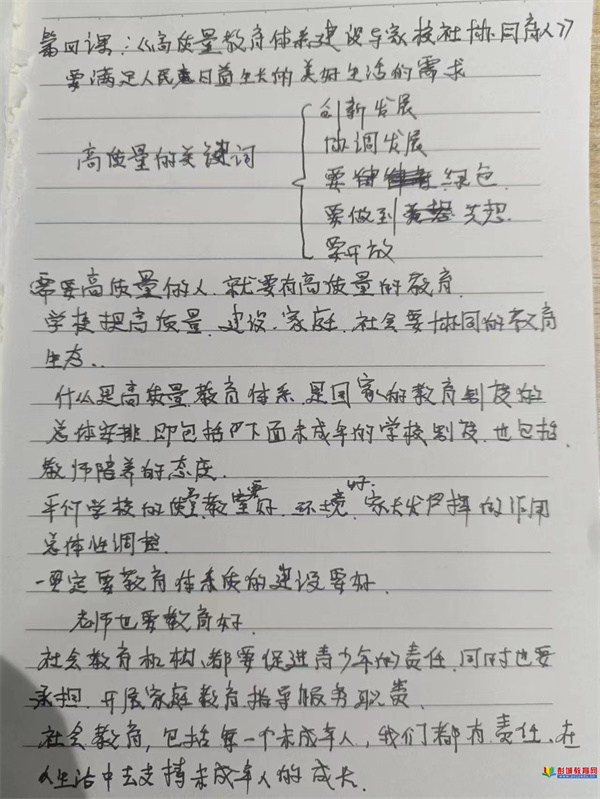 第四课:《高质量教育体系建设与家校社协同育人》
要满足人民日益生长的美好生活的需求
高质量的关键词
创新发展
协调发展
要 绿色
要做到 共想
要开放
需要高质量的人、就要有高质量的教育
学校把高质量、建设、家庭、社会要协同的教育
生态..
什么是高质量教育体系、是国家的教育制度的
总体安排、即包括 下面未成年的学校制度、也包括
教师培养的态度.
平行学校的 教室要好、环境好、家长发挥的作用
总体性调整.
一定要教育体系质的建设要好.
老师也要教育好.
社会教育机构、都要促进青少年的责任、同时也要
承担、开展家庭教育指导服务职责.
社会教育,包括每一个未成年人,我们都有责任、在
生活中去支持未成年人的成长.
彭城教育网